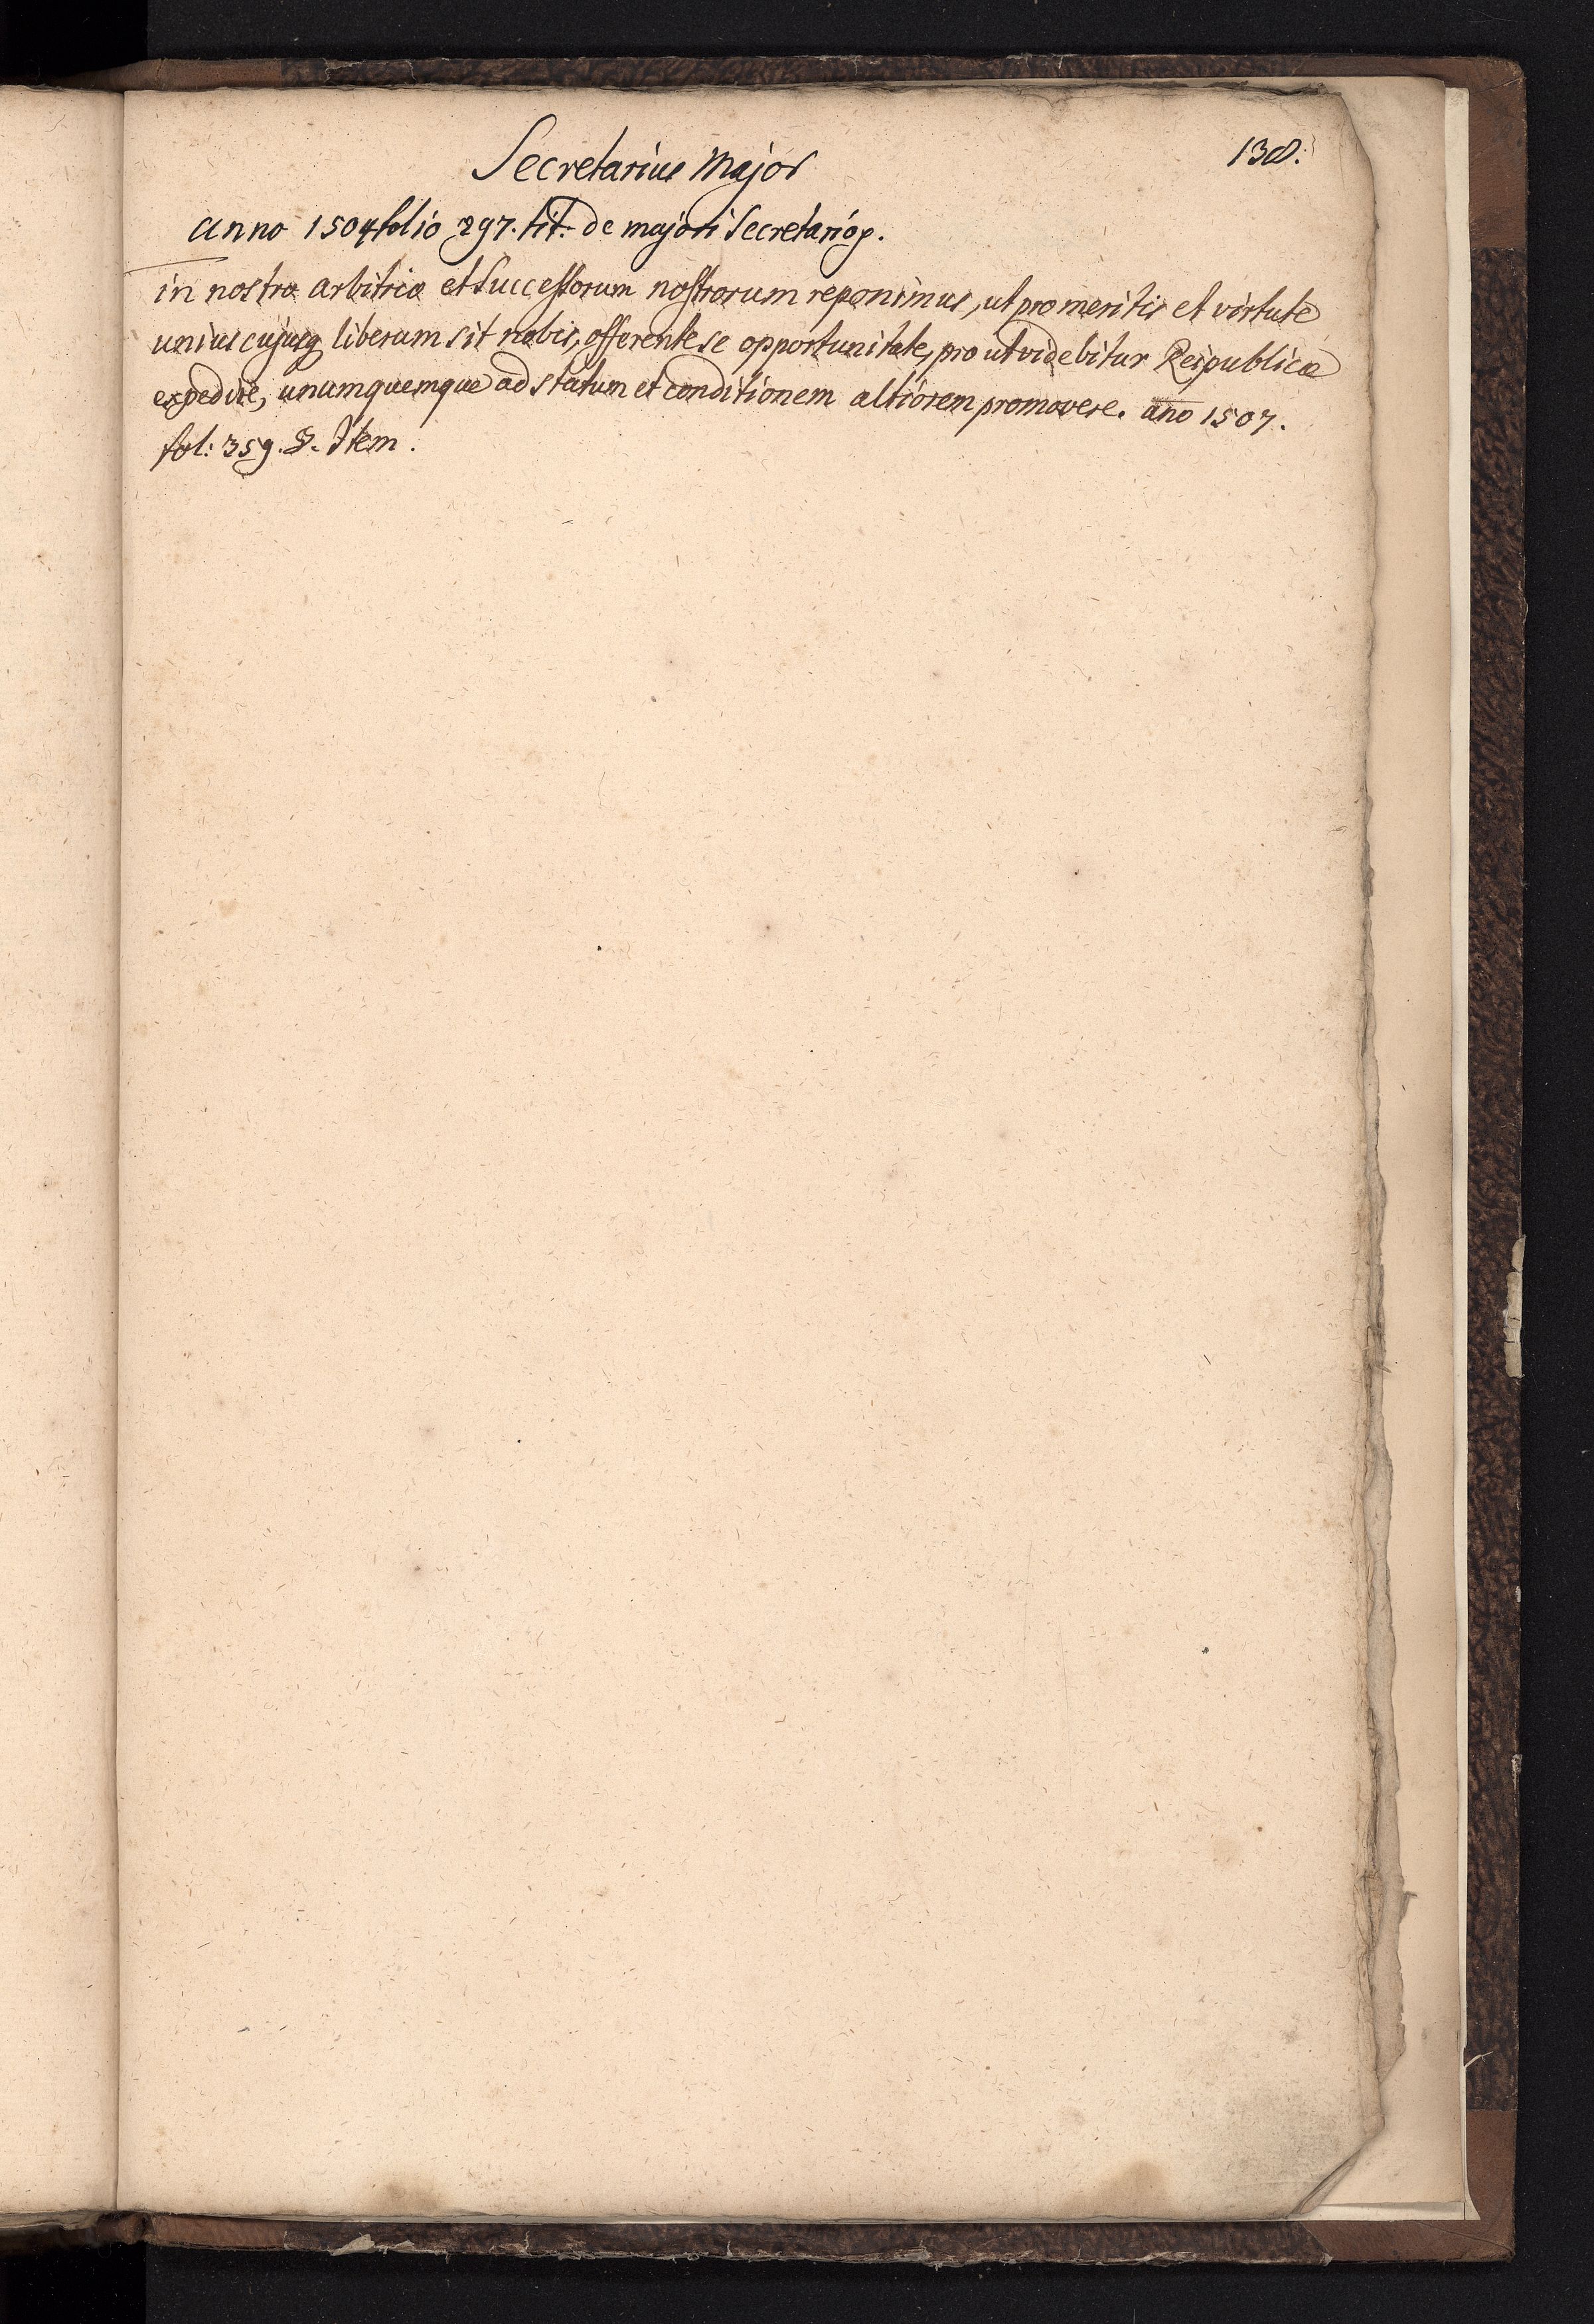 Secretarius Major
138.
Anno 1504 folio 297. tit: de majori Secretario p.
in nostro arbitrio et Successorum nostrorum reponimus, ut pro meritis et virtute
uniuscujusq liberum sit nobis, offerente se opportunitate, pro ut videbitur Reipublicæ
expedire, unumquemque ad statum et conditionem altiorem promovere. año 1507.
fol: 359. §. Item.